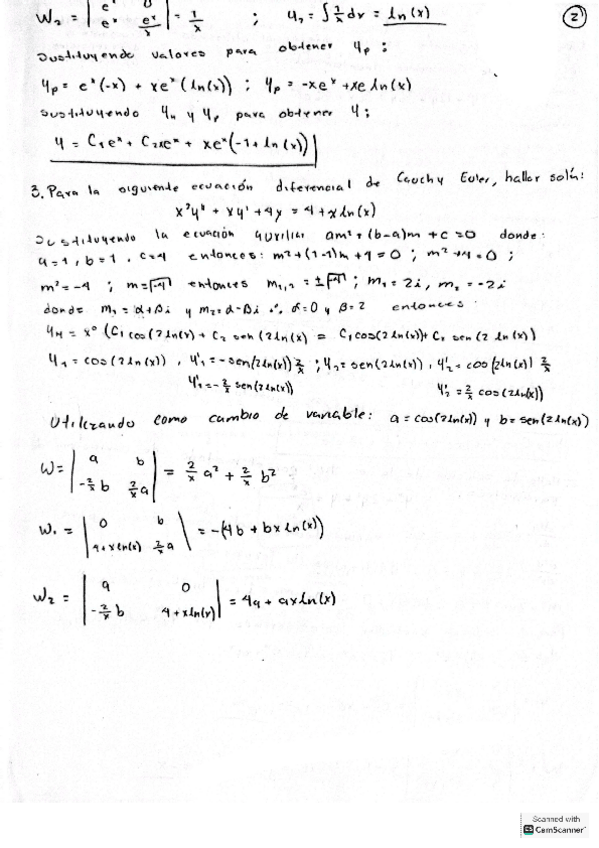 W₂ = | eˣ 0 ; eˣ eˣ/x | = 1/x ; u₂ = ∫ 1/x dx = ln(x)
2
Sustituyendo valores para obtener yp :
yp = eˣ(-x) + xeˣ(ln(x)) ; yp = -xeˣ + xe ln(x)
Sustituyendo yH y yp para obtener y:
y = C₁eˣ + C₂xeˣ + xeˣ(-1 + ln(x))
3. Para la siguiente ecuación diferencial de Cauchy Euler, hallar soln:
x²y'' + xy' + 4y = 4 + x ln(x)
Sustituyendo la ecuación auxiliar am² + (b-a)m + c = 0 donde:
a=1, b=1, c=4 entonces: m² + (1-1)m + 4 = 0 ; m² + 4 = 0 ;
m² = -4 ; m = √-4 entonces m₁,₂ = ±√-4 ; m₁ = 2i, m₂ = -2i
donde m₁ = α+βi y m₂ = α-βi ∴ α=0 y β=2 entonces
yH = x⁰ (C₁ cos(2ln(x) + C₂ sen(2ln(x) = C₁cos(2ln(x)) + C₂ sen(2 ln(x))
y₁ = cos(2ln(x)) , y'₁ = -sen(2ln(x)) 2/x ; y₂ = sen(2ln(x)) , y'₂ = cos(2ln(x)) 2/x
y'₁ = -2/x sen(2ln(x)) y'₂ = 2/x cos(2ln(x))
Utilizando como cambio de variable: a = cos(2ln(x)) y b = sen(2ln(x))
W = | a b ; -2/x b 2/x a | = 2/x a² + 2/x b²
W₁ = | 0 b ; 4+xln(x) 2/x a | = -(4b + bx ln(x))
W₂ = | a 0 ; -2/x b 4+xln(x) | = 4a + axln(x)
Scanned with
CamScanner